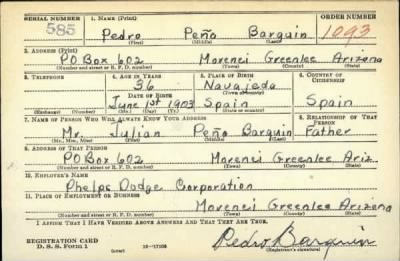 SERIAL NUMBER 1. NAME (Print) ORDER NUMBER
585 Pedro Peño Barquin 1093
(First) (Middle) (Last)
2. ADDRESS (Print)
PO Box 602 Morenci Greenlee Arizona
(Number and street or R. F. D. number) (Town) (County) (State)
3. TELEPHONE 4. AGE IN YEARS 5. PLACE OF BIRTH 6. COUNTRY OF CITIZENSHIP
36 Navajeda
DATE OF BIRTH (Town or county)
June 1st 1903 Spain Spain
(Exchange) (Number) (Mo.) (Day) (Yr.) (State or country)
7. NAME OF PERSON WHO WILL ALWAYS KNOW YOUR ADDRESS 8. RELATIONSHIP OF THAT PERSON
Mr. Julian Peño Barquin Father
(Mr., Mrs., Miss) (First) (Middle) (Last)
9. ADDRESS OF THAT PERSON
PO Box 602 Morenci Greenlee Ariz.
(Number and street or R. F. D. number) (Town) (County) (State)
10. EMPLOYER'S NAME
Phelps Dodge Corporation
11. PLACE OF EMPLOYMENT OR BUSINESS
Morenci Greenlee Arizona
(Number and street or R. F. D. number) (Town) (County) (State)
I AFFIRM THAT I HAVE VERIFIED ABOVE ANSWERS AND THAT THEY ARE TRUE.
REGISTRATION CARD Pedro Barquin
D. S. S. Form 1 (over) 16-17105 (Registrant's signature)